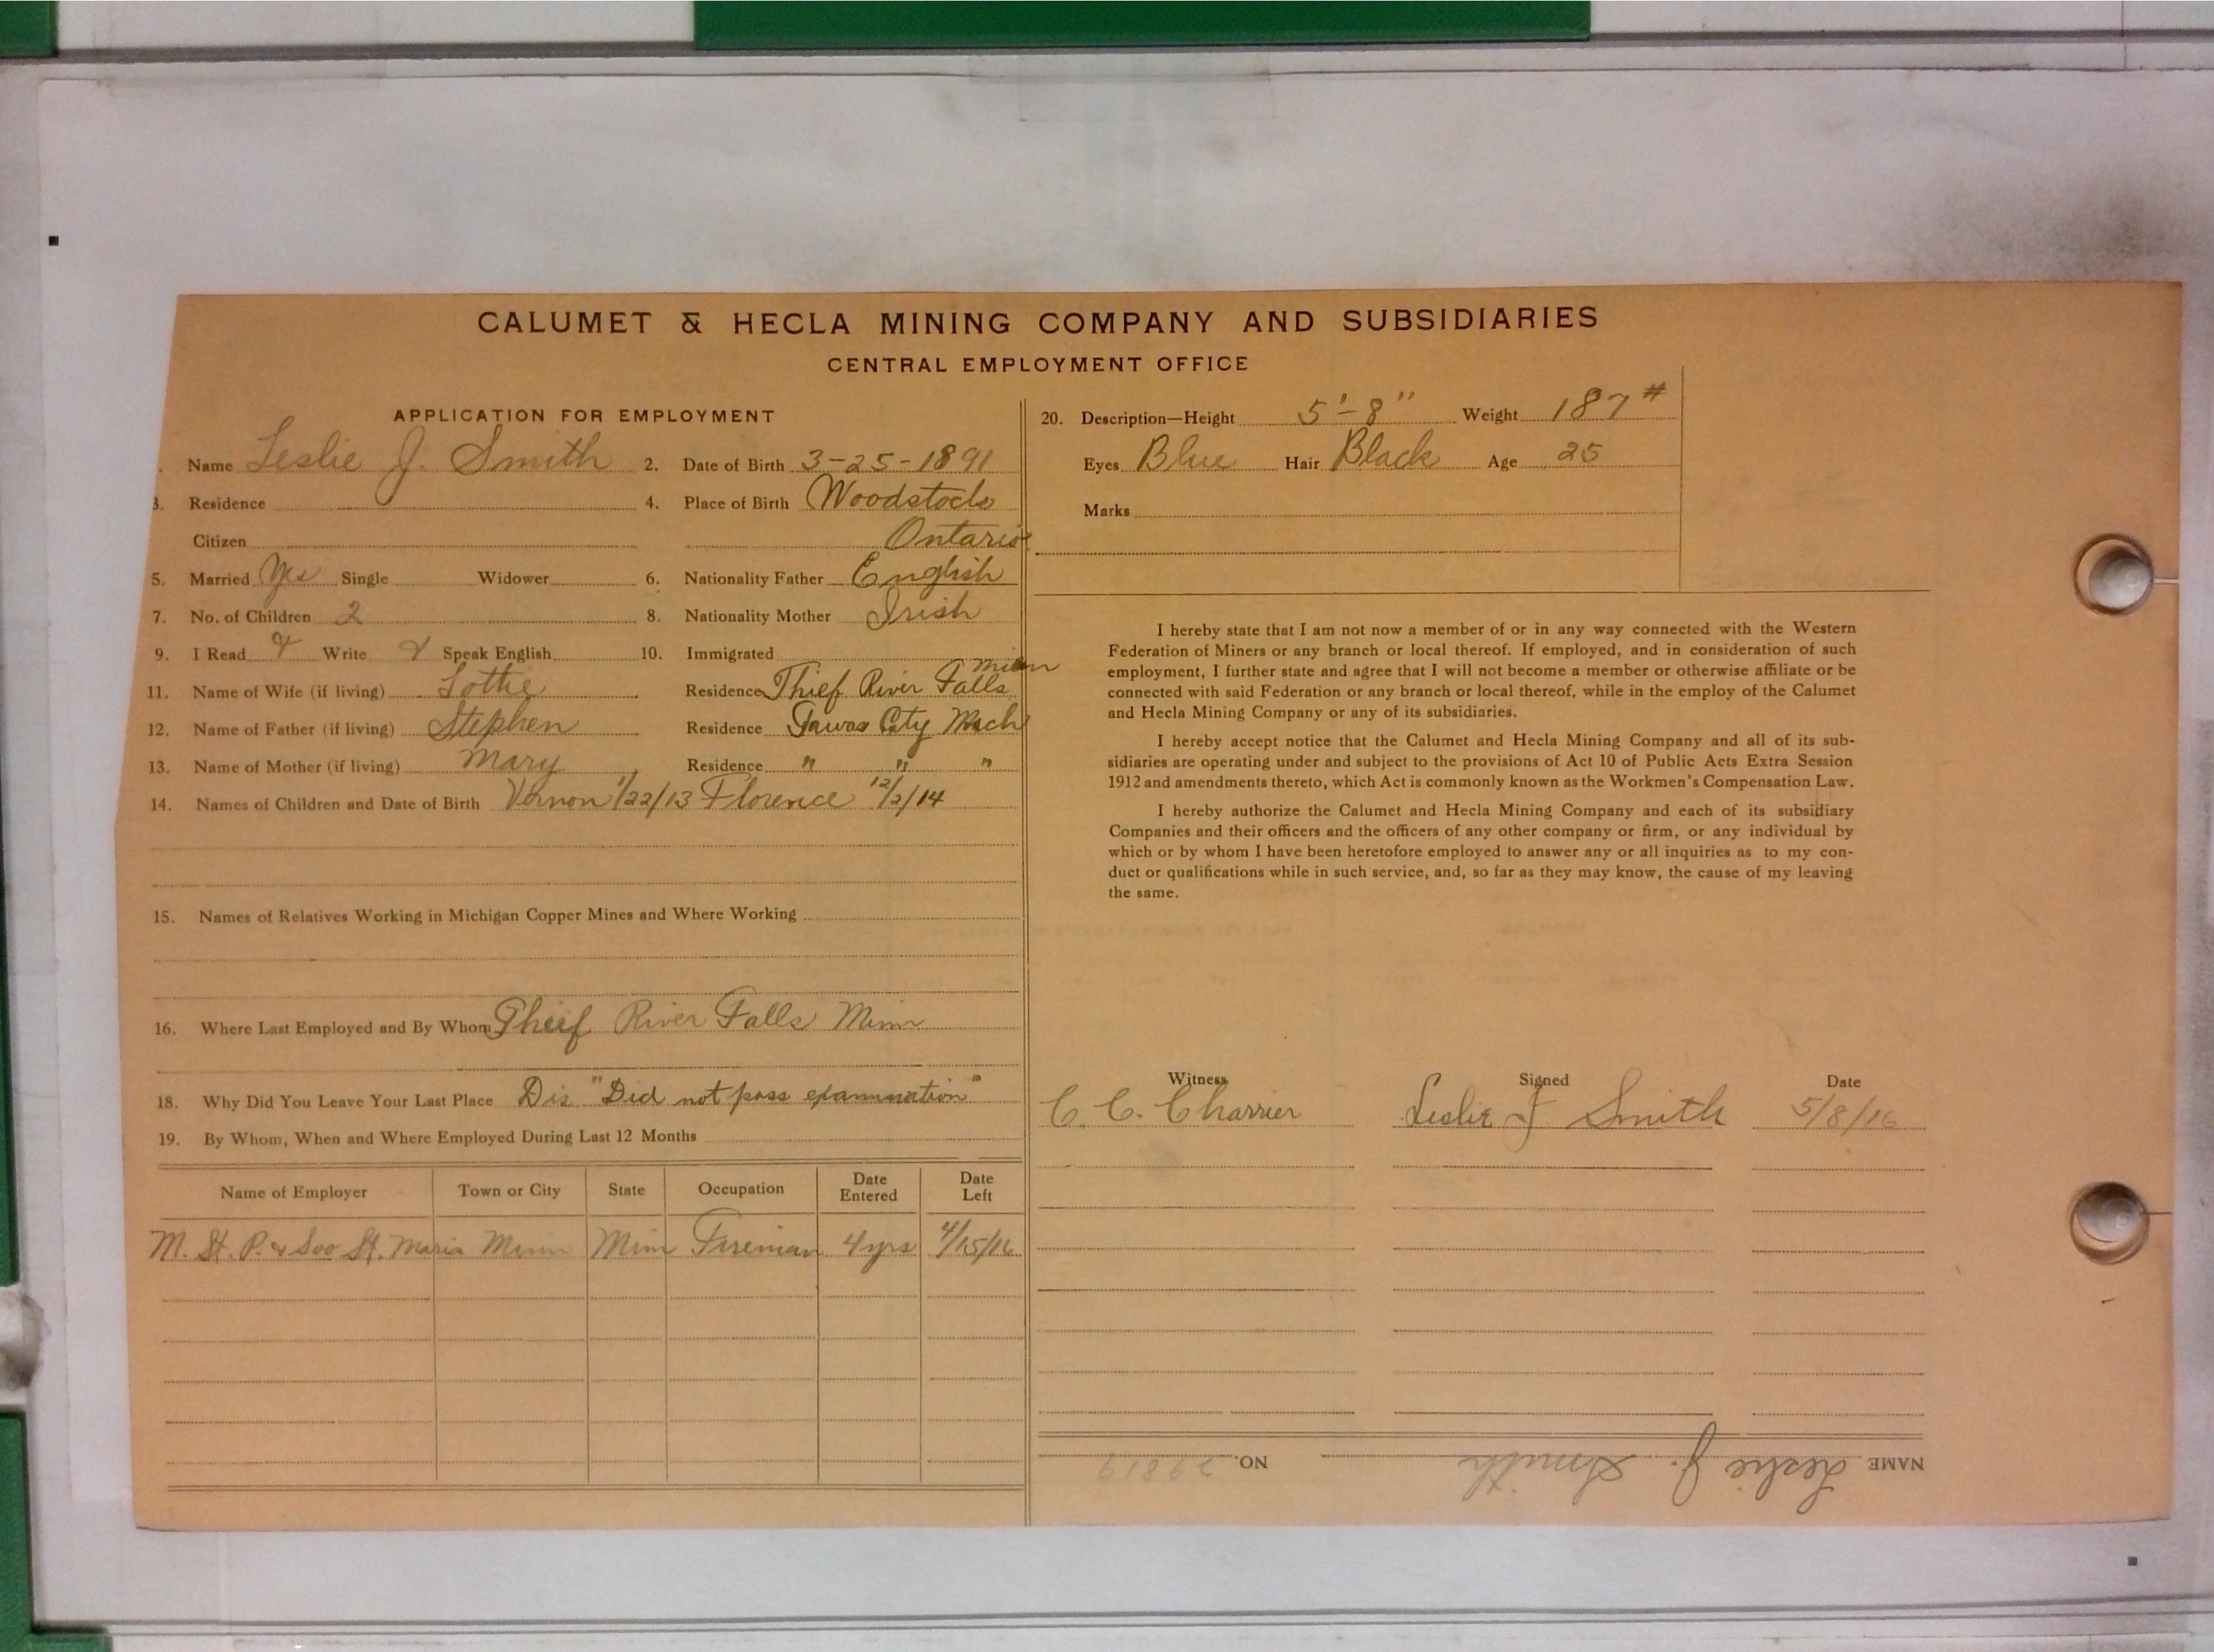 CALUMET & HECLA MINING COMPANY AND SUBSIDIARIES
CENTRAL EMPLOYMENT OFFICE
APPLICATION FOR EMPLOYMENT
Name Leslie J. Smith 2. Date of Birth 3-25-1891
3. Residence 4. Place of Birth Woodstock
Citizen Ontario
5. Married Yes Single Widower 6. Nationality Father English
7. No. of Children 2 8. Nationality Mother Irish
9. I Read Write Speak English 10. Immigrated
11. Name of Wife (if living) Lottie Residence Thief River Falls Minn
12. Name of Father (if living) Stephen Residence Tawas City Mich
13. Name of Mother (if living) Mary Residence " " "
14. Names of Children and Date of Birth Vernon 1/22/13 Florence 12/2/14
15. Names of Relatives Working in Michigan Copper Mines and Where Working
16. Where Last Employed and By Whom Theif River Falls Minn
18. Why Did You Leave Your Last Place Dis "Did not pass examination"
19. By Whom, When and Where Employed During Last 12 Months
Name of Employer Town or City State Occupation Date Entered Date Left
M. St. P. & Soo St. Marie Minn Minn Fireman 4 yrs 4/15/16
20. Description—Height 5'-8" Weight 187#
Eyes Blue Hair Black Age 25
Marks
I hereby state that I am not now a member of or in any way connected with the Western
Federation of Miners or any branch or local thereof. If employed, and in consideration of such
employment, I further state and agree that I will not become a member or otherwise affiliate or be
connected with said Federation or any branch or local thereof, while in the employ of the Calumet
and Hecla Mining Company or any of its subsidiaries.
I hereby accept notice that the Calumet and Hecla Mining Company and all of its sub-
sidiaries are operating under and subject to the provisions of Act 10 of Public Acts Extra Session
1912 and amendments thereto, which Act is commonly known as the Workmen's Compensation Law.
I hereby authorize the Calumet and Hecla Mining Company and each of its subsidiary
Companies and their officers and the officers of any other company or firm, or any individual by
which or by whom I have been heretofore employed to answer any or all inquiries as to my con-
duct or qualifications while in such service, and, so far as they may know, the cause of my leaving
the same.
Witness Signed Date
C. C. Charrier Leslie J Smith 5/8/16
NAME Leslie J. Smith NO. 29819